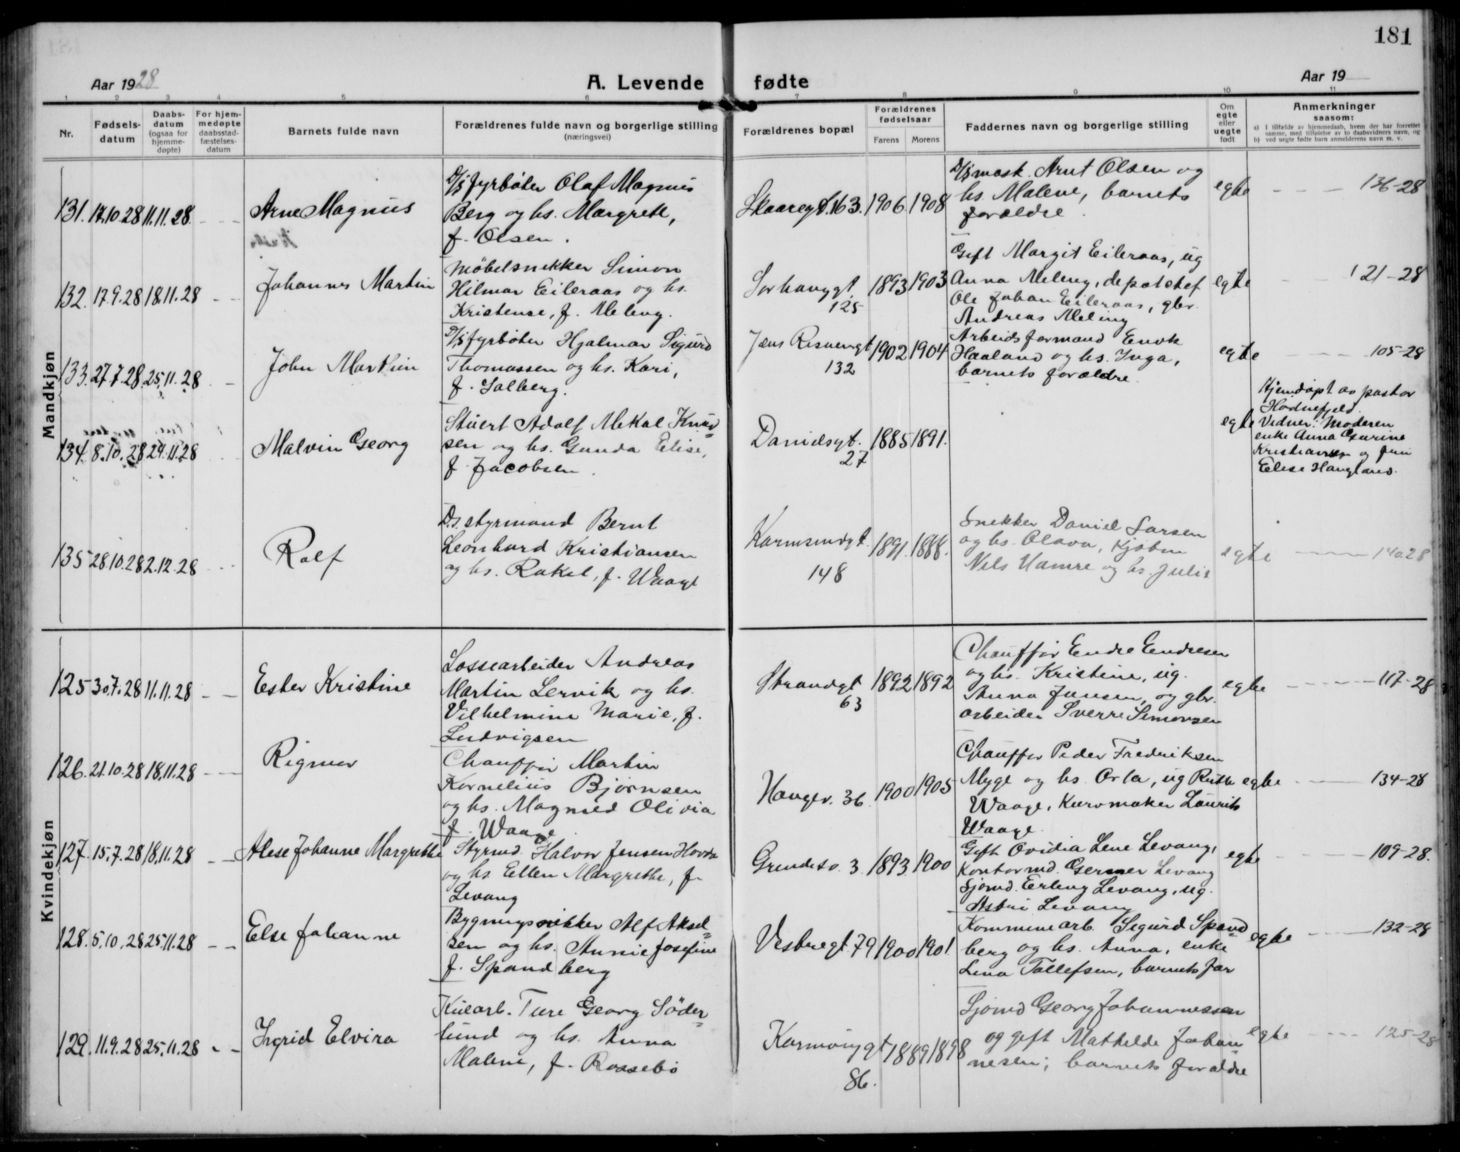 181
Aar 1928
A. Levende fødte
Aar 19
1 2 3 4 5 6 7 8 9 10 11
Nr.
Fødsels-
datum
Daabs-
datum
(ogsaa for
hjemme-
døpte)
For hjem-
medøpte
daabsstad-
fæstelses-
datum
Barnets fulde navn
Forældrenes fulde navn og borgerlige stilling
(næringsvei)
Forældrenes bopæl
Forældrenes
fødselsaar
Farens
Morens
Faddernes navn og borgerlige stilling
Om
egte
eller
uegte
født
Anmerkninger
saasom:
Mandkjøn
131. 14.10.28 11.11.28
Arne Magnus
D/S fyrbøter Olaf Magnus
Berg og hs. Margrete,
f. Olsen.
Skaaregt. 163. 1906. 1908
D/S mask. Arnt Olsen og
hs. Malene, barnets
forældre.
egte
136-28
132. 17.9.28 18.11.28
Johannes Martin
Møbelsnekker Simon
Hilmar Eileraas og hs.
Kristense, f. Meleng.
Sørhauggt.
125
1893 1903
Gift Margit Eileraas, ug
Anna Meling, depotchef
Ole Johan Eileraas, gbr.
Andreas Meling
egte
121-28
133. 27.7.28 25.11.28
John Martin
D/S fyrbøter Hjalmar Sigurd
Thomassen og hs. Kari,
f. Salberg.
Jens Risøengt
132
1902 1904
Arbeidsformand Enok
Haaland og hs. Inga,
barnets forældre.
egte
105-28
134. 8.10.28 29.11.28
Malvin Georg
Stuert Adolf Mikal Knud=
sen og hs. Gunda Elise,
f. Jacobsen.
Danielsgt.
27
1885 1891.
egte
Hjemdøpt av pastor
Hordnefjeld.
Vidner: Moderen
enke Anna Gurine
Kristiansen og fru
Elise Haugland.
135 28.10.28 2.12.28
Rolf
D.s. styrmand Bernt
Leonhard Kristiansen
og hs. Rakel, f. Waage
Karmsundgt.
148
1891. 1888.
Snekker Daniel Larsen
og hs. Olava, Kjøbm
Nils Hamre og hs. Julie
egte
140.28
Kvindekjøn
125 30.7.28 11.11.28
Ester Kristine
Lossearbeider Andreas
Martin Lervik og hs.
Vilhelmine Marie, f.
Ludvigsen
Strandgt
63
1892 1892
Chauffør Endre Endresen
og hs. Kristine, ug.
Anna Jensen, og gbr.
arbeider Sverre Simonsen
egte
117-28
126. 21.10.28 18.11.28
Rigmor
Chauffør Martin
Kornelius Bjørnsen
og hs. Magned Olivia
f. Waage
Haugev. 36. 1900 1905
Chauffør Peder Fredriksen
Myge og hs. Orla, ug Ruth
Waage, Kurvmaker Laurits
Waage.
egte
134-28
127. 15.7.28 18.11.28
Alese Johanne Margrethe
Styrmd. Halvor Jensen Hovda
og hs Ellen Margrethe, f.
Levang
3. 1893 1900
Gift Ovidia Lene Levang,
Kontormd. Gerner Levang
Sjømd. Erling Levang, ug.
Astri Levang
egte
109-28.
128. 5.10.28 25.11.28
Else Johanne
Bygningsnikker Alf Aksel=
sen og hs. Annie Josefine
f. Spandberg
Vestregt 79 1900 1901
Kommunearb. Sigurd Spand
berg og hs. Anna, enke
Lina Tollefsen, barnets far
egte
132-28
129. 11.9.28 25.11.28
Ingrid Elvira
Ture Georg Söder=
lund og hs. Anna
Malene, f. Rossebø
Karmsundgt
86.
1889 1898
Sjømd Georg Johannessen
og gift Mathilde Johan=
nesen; barnets forældre
egte
125-28